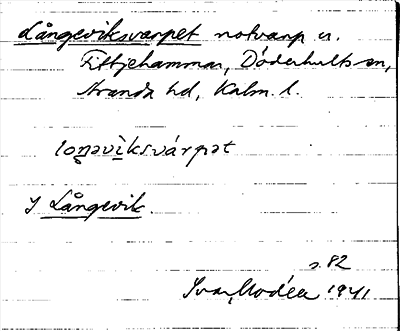 Långeviksvarpet notvarp u.
Fittjehammar, Döderhults sn,
Stranda hd, Kalm. l.
loŋəvìksvárpət
J Långevik.
s. 82
Ivar Modéer 1941